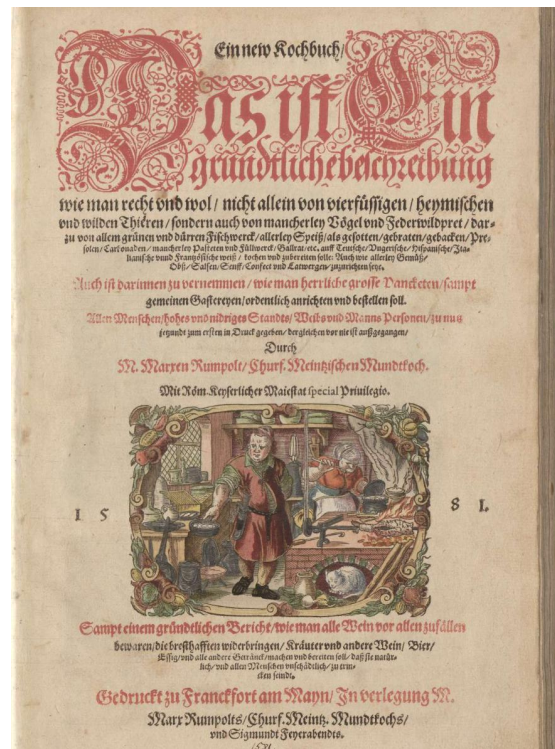 Ein new Kochbuch/
Das ist Ein
grundtliche beschreibung
wie man recht vnd wol / nicht allein von vierfüssigen / heymischen
vnd wilden Thieren / sondern auch von mancherley Vögel vnd Federwildpret / dar-
zu von allem grünen vnd dürren Fischwerck / allerley Speiß / als gesotten / gebraten / gebacken / Pre-
solen / Carbonaden / mancherley Pasteten vnd Füllwerck / Gallrat / etc. auff Teutsche / Vngerische / Hispanische / Ita-
lianische vnnd Frantzösische weiß / kochen vnd zubereiten solle: Auch wie allerley Gemüß /
Obß / Salsen / Senff / Confect vnd Latwergen / zuzurichten seye.
Auch ist darinnen zu vernemmen / wie man herrliche grosse Pancketen / sampt
gemeinen Gastereyen / ordentlich anrichten vnd bestellen soll.
Allen Menschen / hohes vnd nidriges Standts / Weibs vnd Manns Personen / zu nutz
jetzundt zum ersten in Druck gegeben / dergleichen vor nie ist außgegangen /
Durch
M. Marxen Rumpolt / Churf. Meintzischen Mundtkoch.
Mit Röm. Keyserlicher Maiestat special Priuilegio.
1 5 8 1.
Sampt einem gründtlichen Bericht / wie man alle Wein vor allen zufällen
bewaren / die bresthafften widerbringen / Kräuter vnd andere Wein / Bier /
Essig / vnd alle andere Getränck / machen vnd bereiten soll / daß sie natür-
lich / vnd allen Menschen vnschädtlich / zu trin-
cken seindt.
Gedruckt zu Franckfort am Mayn / In verlegung M.
Marx Rumpolts / Churf. Meintz. Mundtkochs /
vnd Sigmundt Feyerabendts.